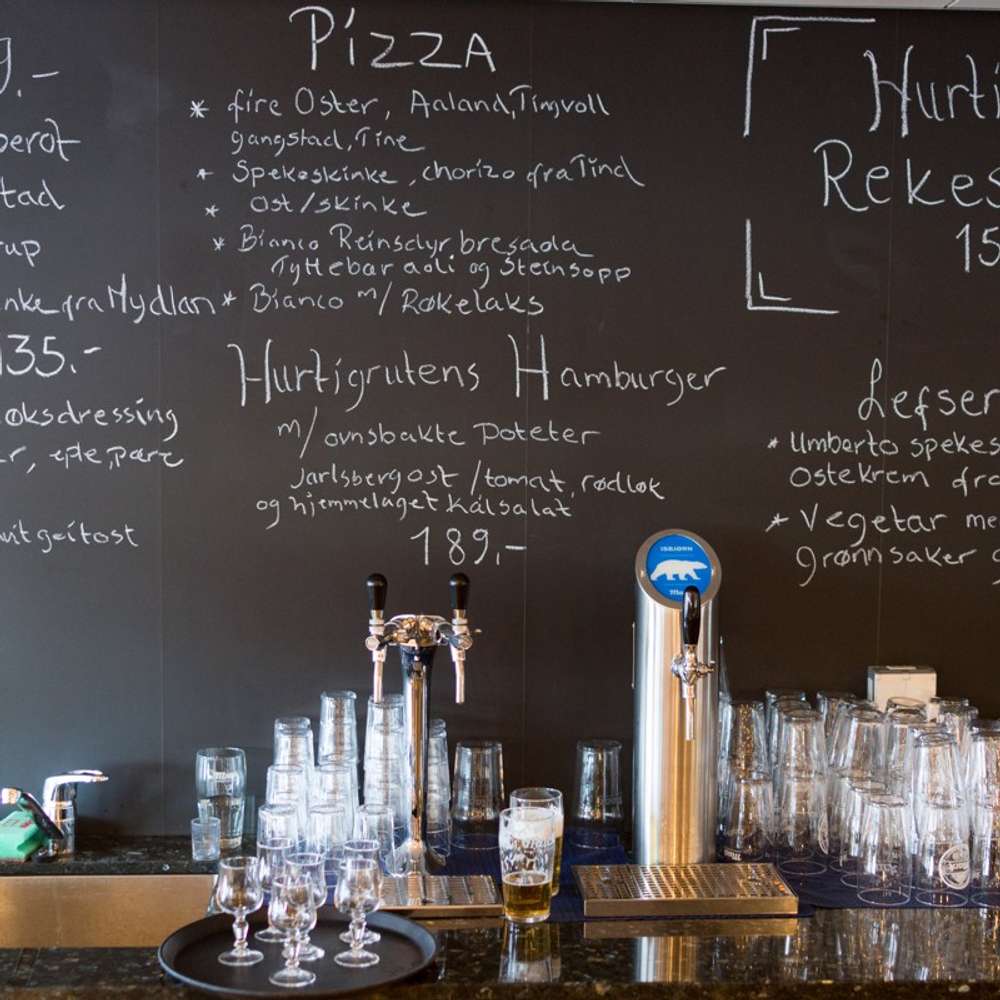 9.-
berot
tad
rup
inke fra Mydlan
135.-
øksdressing
er, eple, pære
hvit geitost
Pizza
* fire Oster, Aaland, Tingvoll
gangstad, Tine
* Spekeskinke, chorizo fra Tind
* Ost/skinke
* Bianco Reinsdyr bresaola
Tyttebær aoli og Steinsopp
* Bianco m/ Røkelaks
Hurtigrutens Hamburger
m/ ovnsbakte Poteter
Jarlsberg ost /tomat, rødløk
og hjemmelaget kålsalat
189,-
Hurti
Rekes
15
Lefser
* Umberto spekes
Ostekrem fra
* Vegetar me
grønnsaker
ISBJØRN